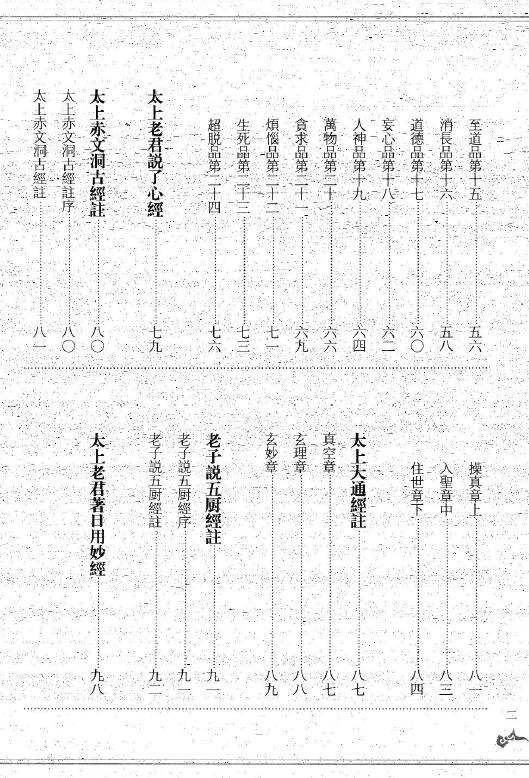 至道品第十五……五六
消長品第十六……五八
道德品第十七……六〇
妄心品第十八……六二
人神品第十九……六四
萬物品第二十……六六
貪求品第二十一……六九
煩惱品第二十二……七一
生死品第二十三……七三
超脱品第二十四……七六
太上老君説了心經……七九
太上赤文洞古經註……八〇
太上赤文洞古經註序……八〇
太上赤文洞古經註……八一
操真章上……八一
入聖章中……八三
住世章下……八四
太上大通經註……八七
真空章……八七
玄理章……八八
玄妙章……八九
老子説五厨經註……九一
老子説五厨經序……九一
老子説五厨經註……九二
太上老君著日用妙經……九八
二